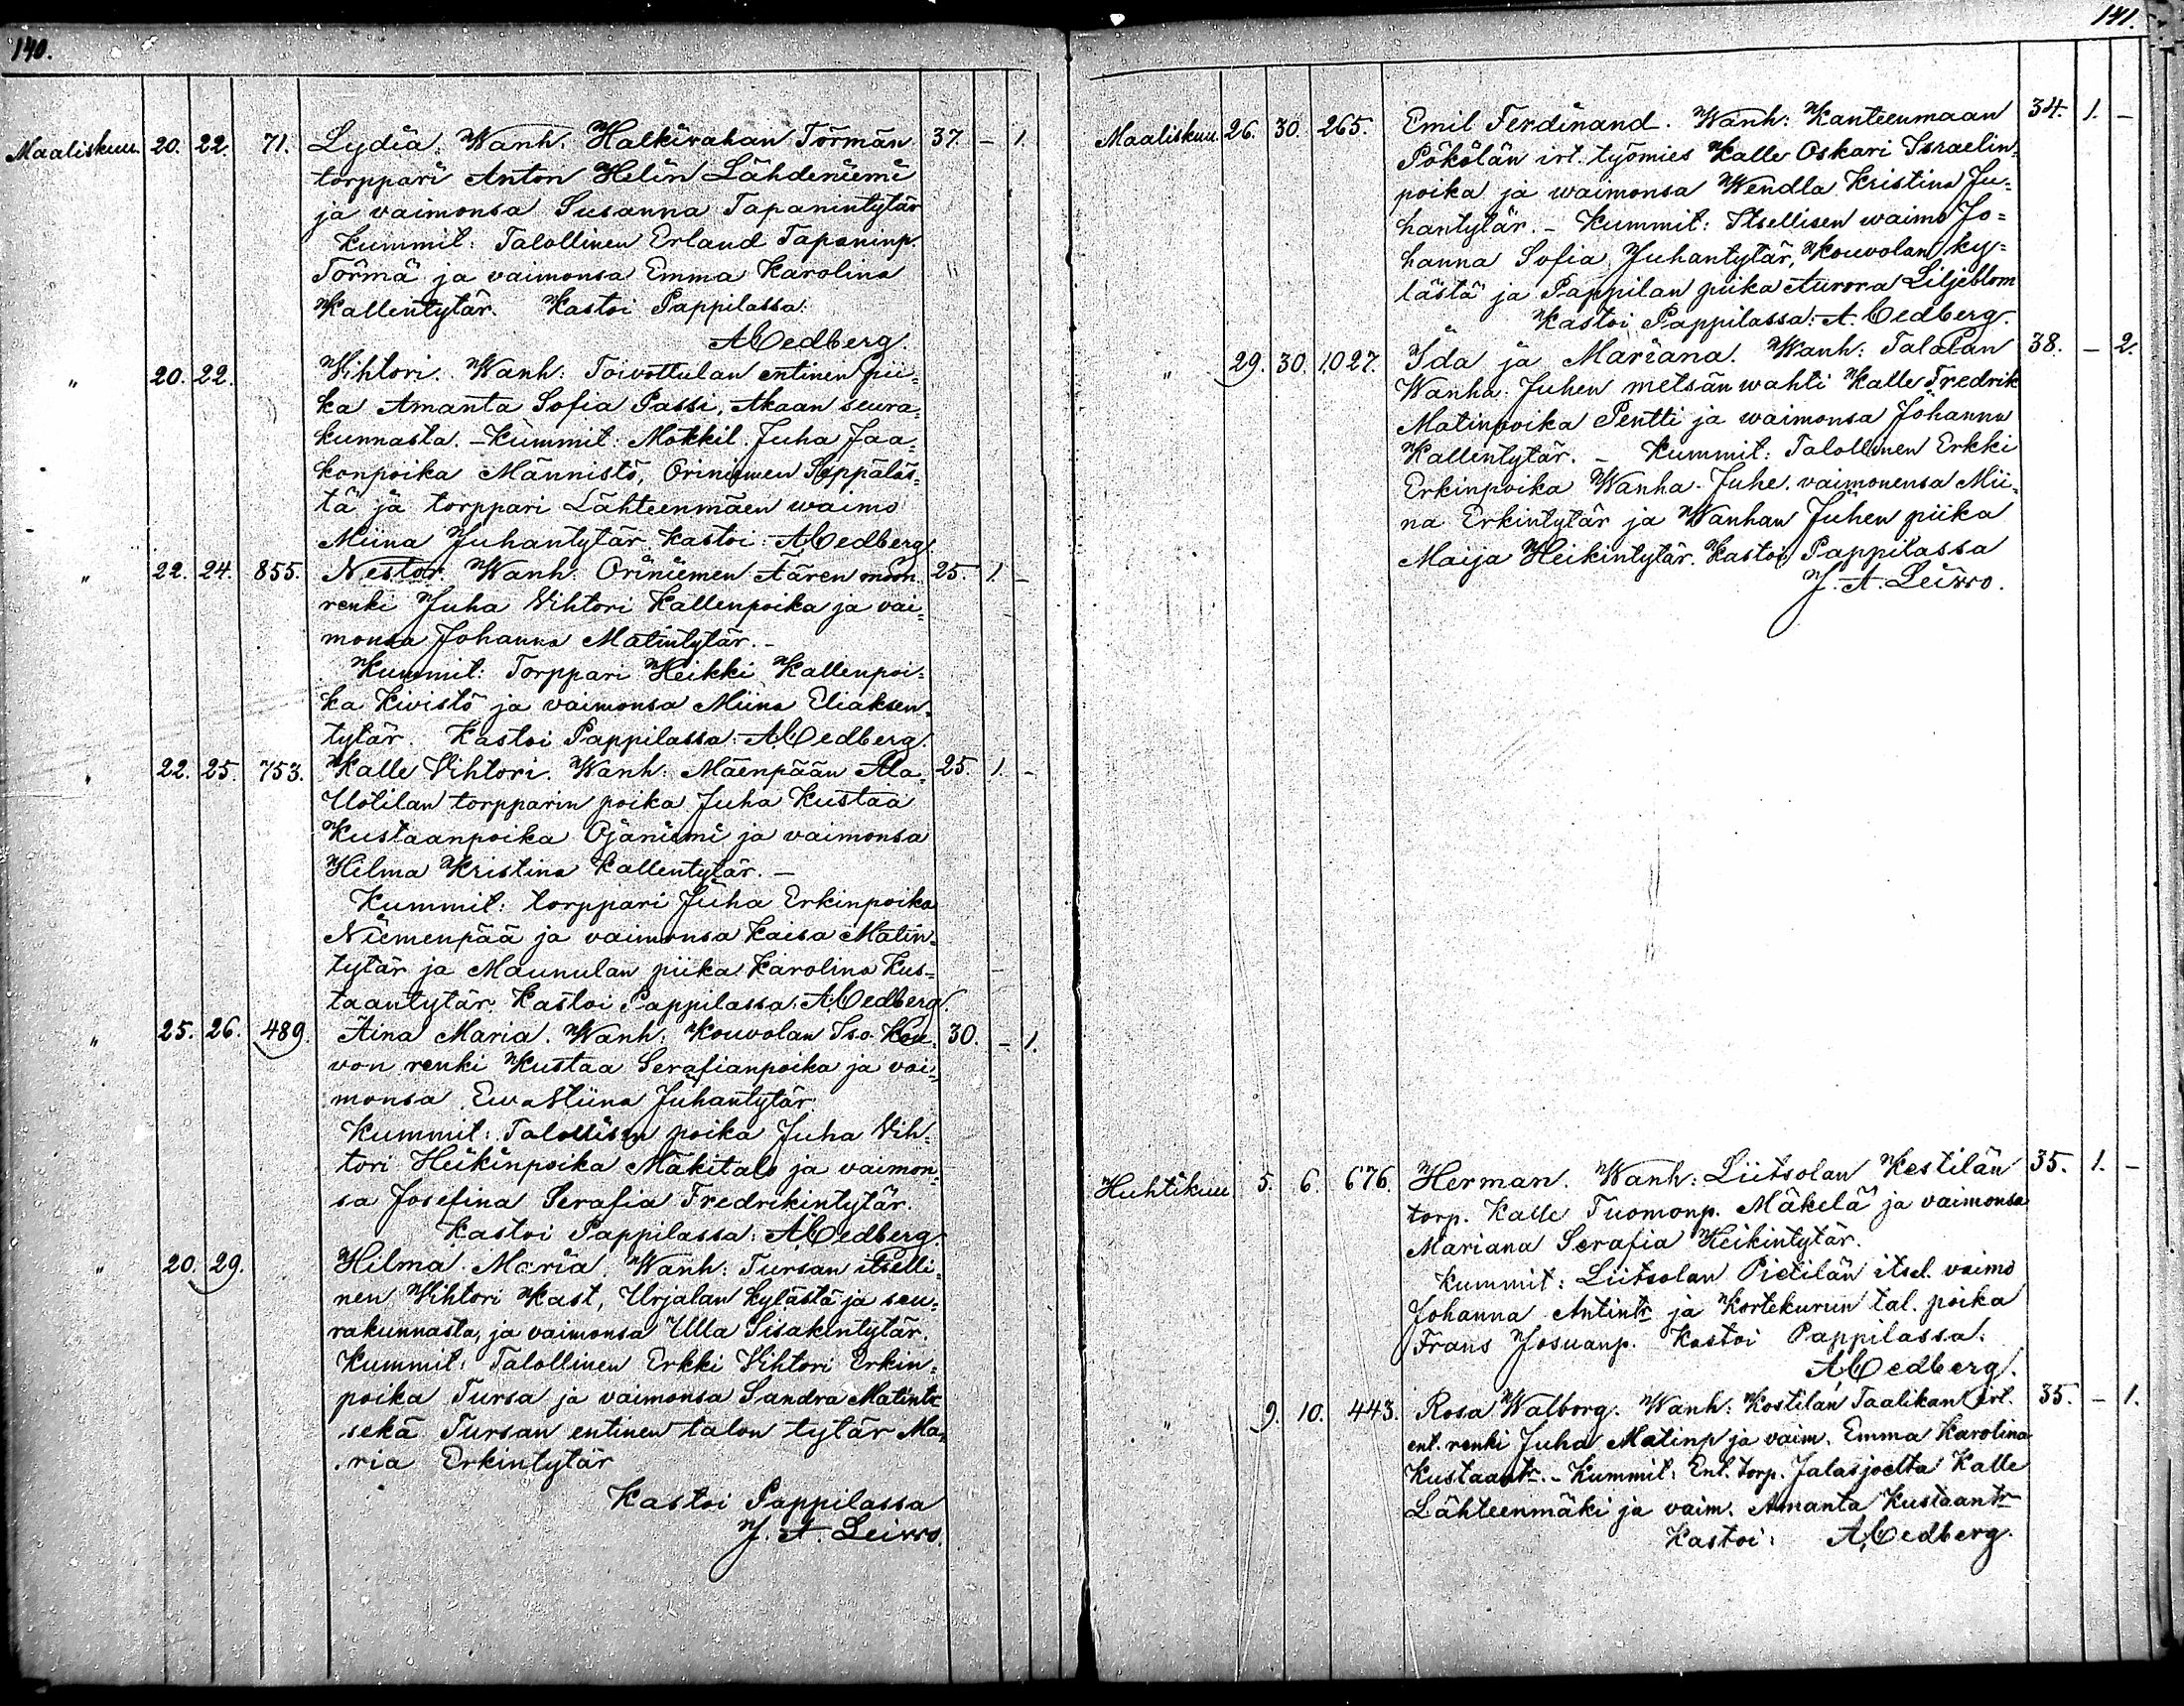 140.
Maaliskuu. 20. 22. 71. Lydia. Wanh. Halkivahan Törmän 37. – 1.
torppari Anton Helin Lähdeniemi
ja vaimonsa Susanna Tapanintytär
Kummit: Talollinen Erland Tapaninp.
Törmä ja vaimonsa Emma Karolina
Kallentytär. Kastoi Pappilassa:
A Cedberg.
" 20. 22. Vihtori. Wanh: Toivottulan entinen pii-
ka Amanta Sofia Passi, Akaan seura-
kunnasta. – Kummit: Mökkil. Juha Jaa-
konpoika Männistö, Oriniemen Seppäläs-
tä ja torppari Lähteenmäen waimo
Miina Juhantytär. Kastoi: A Cedberg.
" 22. 24. 855. Nestor. Wanh: Oriniemen Äären muon. 25. 1. –
renki Juha Vihtori Kallenpoika ja vai-
monsa Johanna Matintytär. –
Kummit: Torppari Heikki Kallenpoi-
ka Kivistö ja vaimonsa Miina Eliaksen-
tytär. Kastoi Pappilassa: A Cedberg.
" 22. 25. 753. Kalle Vihtori. Wanh: Mäenpään Ala- 25. 1. –
Uotilan torpparin poika Juha Kustaa
Kustaanpoika Ojaniemi ja vaimonsa
Hilma Kristina Kallentytär. –
Kummit: torppari Juha Erkinpoika
Niemenpää ja vaimonsa Kaisa Matin-
tytär ja Maunulan piika Karolina Kus-
taantytär. Kastoi Pappilassa: A Cedberg.
" 25. 26. 489. Aina Maria. Wanh: Kouvolan Iso-Kou- 30. – 1.
von renki Kustaa Serafianpoika ja vai-
monsa Ewa Stiina Juhantytär.
Kummit: Talollisen poika Juha Vih-
tori Heikinpoika Mäkitalo ja vaimon-
sa Josefina Serafia Fredrikintytär.
Kastoi Pappilassa: A Cedberg.
" 20. 29. Hilma Maria. Wanh: Tursan itselli-
nen Vihtori Kast, Urjalan kylästä ja seu-
rakunnasta, ja vaimonsa Ulla Iisakintytär.
Kummit: Talollinen Erkki Vihtori Erkin-
poika Tursa ja vaimonsa Sandra Matintr
sekä Tursan entinen talon tytär Ma-
ria Erkintytär
Kastoi Pappilassa
J. A. Leivo.
141.
Maaliskuu. 26. 30. 265. Emil Ferdinand. Wanh: Kanteenmaan 34. 1. –
Pökölän irt. työmies Kalle Oskari Israelin-
poika ja waimonsa Wendla Kristina Ju-
hantytär. – Kummit: Itsellisen waimo Jo-
hanna Sofia Juhantytär, Kouvolan ky-
lästä ja Pappilan piika Aurora Liljeblom
Kastoi Pappilassa: A. Cedberg.
" 29. 30. 1027. Ida ja Mariana. Wanh: Talalan 38. – 2.
Wanha-Juhen metsän wahti Kalle Fredrik
Matinpoika Pentti ja waimonsa Johanna
Kallentytär. – Kummit: Talollinen Erkki
Erkinpoika Wanha-Juhe, vaimonensa Mii-
na Erkintytär ja Wanhan Juhen piika
Maija Heikintytär. Kastoi Pappilassa
J. A. Leivo.
Huhtikuu 5. 6. 676. Herman. Wanh: Liitsolan Kestilän 35. 1. –
torp. Kalle Tuomonp. Mäkelä ja vaimonsa
Mariana Serafia Heikintytär.
Kummit: Liitsolan Pietilän itsel. vaimo
Johanna Antintr ja Kortekurun tal. poika
Frans Josuanp. Kastoi Pappilassa:
A Cedberg.
" 9. 10. 443. Rosa Walborg. Wanh: Kostilan Taalikan irt. 35. – 1.
ent. renki Juha Matinp ja vaim. Emma Karolina
Kustaantr. – Kummit: Ent. torp. Jalasjoelta Kalle
Lähteenmäki ja vaim. Amanta Kustaantr
Kastoi: A Cedberg.